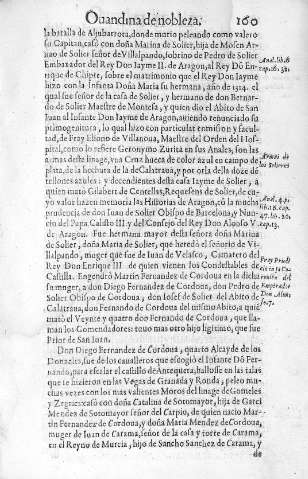 Ouandina de nobleza. 160
la batalla de Aljubarrota, donde murio peleando como valero-
so Capitan, casó con doña Marina de Solier, hija de Mosen Ar-
nao de Solier señor de Villalpando, sobrino de Pedro de Solier
Embaxador del Rey Don Iayme II. de Aragon, al Rey Don En-
rique de Chipre, sobre el matrimonio que el Rey Don Iayme
hizo con la Infanta Doña Maria su hermana, año de 1314. el
qual fue señor de la casa de Solier, y hermano de don Bernar-
do de Solier Maestre de Montesa, y quien dio el Abito de San
Iuan al Infante Don Iayme de Aragon, auiendo renunciado su
primogenitura, lo qual hizo con particular comission y facul-
tad, de Fray Eliono de Villanoua, Maestre del Orden del Hos-
pital, como lo refiere Geronymo Zurita en sus Anales, son las
armas deste linage, vna Cruz hueca de color azul en campo de
plata, de la hechura de la de Calatraua, y por orla doze de
rellones azules: y decendientes desta casa Iayme de Solier, a
quien mató Gilabert de Centellas, Requesens de Solier, de cu-
yo valor hazen memoria las Historias de Aragon, cō la mucha
prudencia de don Iuan de Solier Obispo de Barcelona, y Nun-
cio del Papa Calisto III. y del Consejo del Rey Don Alonso V.
de Aragon. Fue hermana mayor desta señora doña Marina
de Solier, doña Maria de Solier, que heredò el señorio de Vi-
llalpando, muger que fue de Iuan de Velasco, Camarero del
Rey Don Enrique III. de quien vienen los Condestables de
Castilla. Engendró Martin Fernandez de Cordoua en la dicha
su muger, a don Diego Fernandez de Cordoua, don Pedro de
Solier Obispo de Cordoua, don Iosef de Solier del Abito de
Calatraua, don Fernando de Cordoua del mismo Abito, a quié
mató el Veynte y quatro don Fernando de Cordoua, que lla-
man los Comendadores: tuuo mas otro hijo ligitimo, que fue
Prior de San Iuan.
Don Diego Fernandez de Cordoua, quarto Alcayde de los
Donzeles, fue de los caualleros que escogió el Infante Dō Fer-
nando, para escalar el castillo de Antequera, hallose en las talas
que se hizieron en las Vegas de Granada y Ronda, peleo mu-
chas vezes con los mas valientes Moros del linage de Gomeles
y Zegries: casó con doña Catalina de Sotomayor, hija de Garci
Mendez de Sotomayor señor del Carpio, de quien nacio Mar-
tin Fernandez de Cordoua, y doña Maria Mendez de Cordoua,
muger de Iuan de Carama, señor de la casa y torre de Carama,
en el Reyno de Murcia, hijo de Sancho Sanchez de Carama, y
de